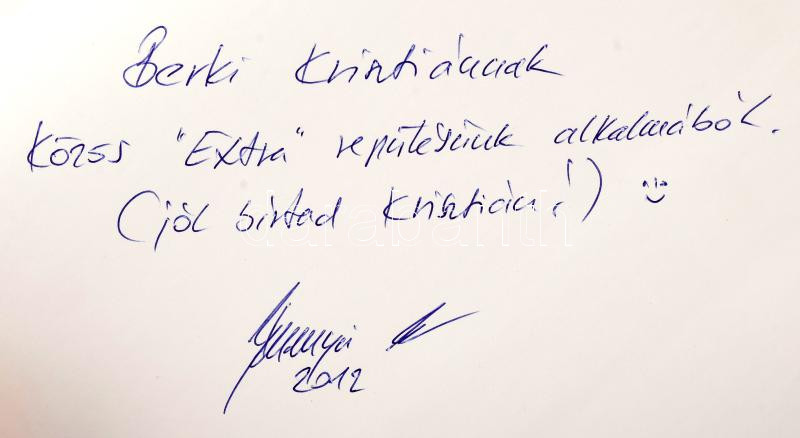 Berki Krisztiánnak
Közös "Extra" repülésünk alkalmából.
(jól bírtad Krisztián!)
2012
darabanth